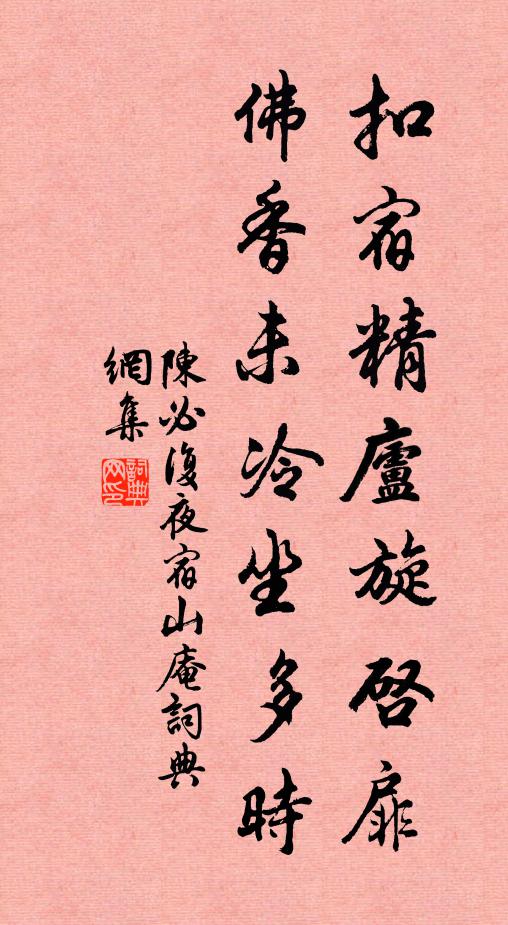 扣宿精廬旋啓扉
佛香未冷坐多時
陳必復夜宿山庵詞典
網集
詞典
网印